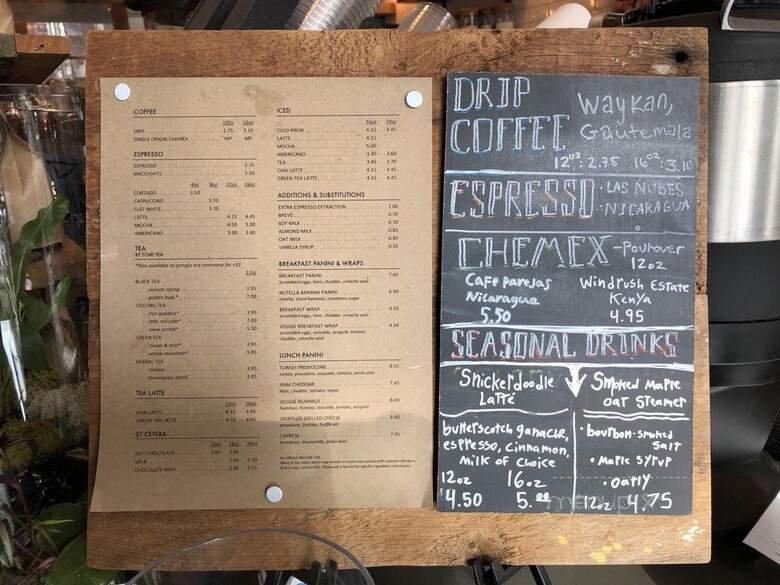 COFFEE
12oz 16oz
DRIP 2.75 3.10
SINGLE ORIGIN CHEMEX MP MP
ESPRESSO
ESPRESSO 2.75
MACCHIATO 3.50
4oz 8oz 12oz 16oz
CORTADO 3.50
CAPPUCCINO 3.70
FLAT WHITE 3.70
LATTE 4.15 4.45
MOCHA 4.50 5.00
AMERICANO 3.30 3.60
TEA
BY TOMI TEA
*Also available as gongfu tea ceremony for +$2
12oz
BLACK TEA
yunnan spring 3.95
golden buds* 7.00
OOLONG TEA
iron goddess* 3.95
little red robe* 7.00
snow orchid* 5.50
GREEN TEA
clouds & mist* 3.95
yellow mountain* 5.95
HERBAL TEA
rooibos 3.95
lemongrass blend 3.95
TEA LATTE
12oz 16oz
CHAI LATTE 4.15 4.45
GREEN TEA LATTE 4.15 4.45
ET CETERA
12oz 16oz 24oz
HOT CHOCOLATE 3.60 3.80
MILK 1.60 2.20
CHOCOLATE MILK 2.00 3.55
ICED
16oz 24oz
COLD BREW 4.15 4.45
LATTE 4.15
MOCHA 5.00
AMERICANO 3.30 3.60
TEA 3.45 3.70
CHAI LATTE 4.15 4.45
GREEN TEA LATTE 4.15 4.45
ADDITIONS & SUBSTITUTIONS
EXTRA ESPRESSO EXTRACTION 1.00
BREVE 0.70
SOY MILK 0.70
ALMOND MILK 0.85
OAT MILK 0.85
VANILLA SYRUP 0.55
BREAKFAST PANINI & WRAPS
BREAKFAST PANINI 7.45
scrambled eggs, ham, cheddar, sriracha aioli
NUTELLA BANANA PANINI 6.90
nutella, sliced bananas, cinnamon sugar
BREAKFAST WRAP 4.50
scrambled eggs, ham, cheddar, sriracha aioli
VEGGIE BREAKFAST WRAP 4.50
scrambled eggs, avocado, arugula, tomato,
cheddar, sriracha aioli
LUNCH PANINI
TURKEY PROVOLONE 8.55
turkey, provolone, avocado, tomato, pesto aioli
HAM CHEDDAR 7.45
ham, cheddar, tomato, mayo
VEGGIE HUMMUS 8.00
hummus, tomato, avocado, tomato, arugula
TRUFFLED GRILLED CHEESE 6.90
provolone, fontina, truffle oil
CAPRESE 7.45
tomatoes, mozzarella, pesto aioli
DRIP
COFFEE
Waykan,
Gautemala
12oz: 2.75 16oz: 3.10
ESPRESSO
• LAS NUBES
- NICARAGUA
CHEMEX
-Pourover
12oz
Cafe Parejas
Nicaragua
5.50
Windrush Estate
Kenya
4.95
SEASONAL DRINKS
Snickerdoodle
Latte
butterscotch ganache,
espresso, cinnamon,
milk of choice
12oz 16oz
4.50 5.00
Smoked Maple
Oat Steamer
• bourbon-smoked
salt
• Maple syrup
• Oatly
12oz 4.75